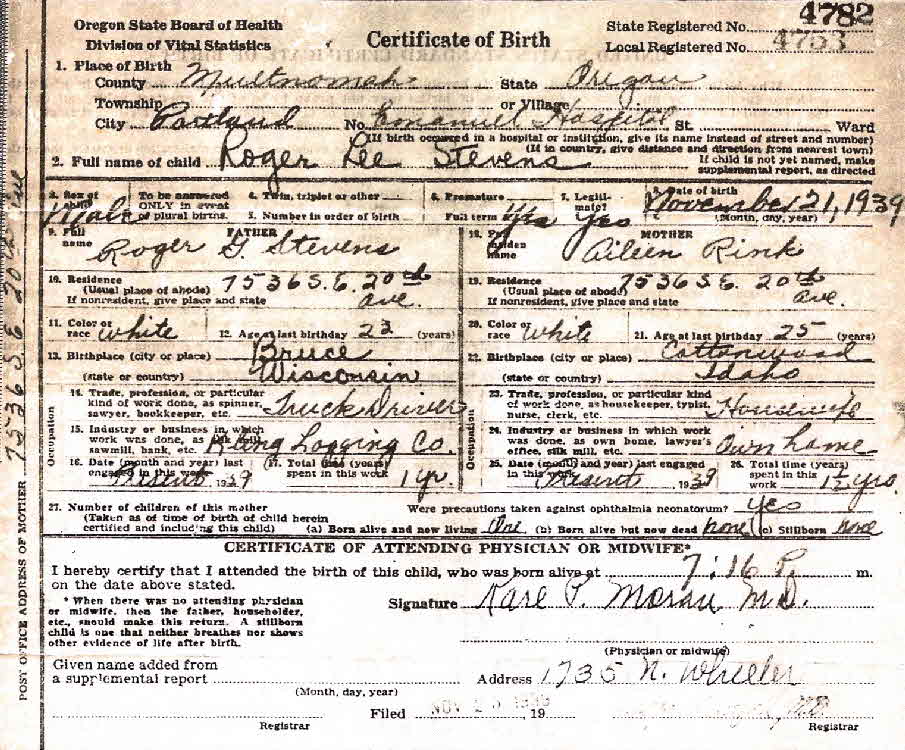 4782
Oregon State Board of Health
Division of Vital Statistics
Certificate of Birth
State Registered No.
Local Registered No. 4753
1. Place of Birth
County Multnomah State Oregon
Township or Village
City Portland No. Emanuel Hospital St. Ward
(If birth occurred in a hospital or institution, give its name instead of street and number)
(If in country, give distance and direction from nearest town)
2. Full name of child Roger Lee Stevens
If child is not yet named, make supplemental report, as directed
3. Sex of child Male
To be answered ONLY in event of plural births.
4. Twin, triplet or other
5. Number in order of birth
6. Premature
Full term Yes
7. Legitimate? Yes
8. Date of birth November 21, 1939
(Month, day, year)
FATHER
9. Full name Roger G. Stevens
10. Residence 7536 S.E. 20th Ave.
(Usual place of abode)
If nonresident, give place and state
11. Color or race White
12. Age at last birthday 23 (years)
13. Birthplace (city or place) Bruce
(state or country) Wisconsin
Occupation
14. Trade, profession, or particular kind of work done, as spinner, sawyer, bookkeeper, etc. Truck Driver
15. Industry or business in which work was done, as silk mill, sawmill, bank, etc. Logging Co.
16. Date (month and year) last engaged in this work Present 1939
17. Total time (years) spent in this work 1 yr.
MOTHER
18. Full maiden name Aileen Rink
19. Residence 7536 S.E. 20th Ave.
(Usual place of abode)
If nonresident, give place and state
20. Color or race White
21. Age at last birthday 25 (years)
22. Birthplace (city or place) Cottonwood
(state or country) Idaho
Occupation
23. Trade, profession, or particular kind of work done, as housekeeper, typist, nurse, clerk, etc. Housewife
24. Industry or business in which work was done, as own home, lawyer's office, silk mill, etc. Own home
25. Date (month and year) last engaged in this work Present 1939
26. Total time (years) spent in this work 1½ yrs.
27. Number of children of this mother
(Taken as of time of birth of child herein certified and including this child)
Were precautions taken against ophthalmia neonatorum? Yes
(a) Born alive and now living One (b) Born alive but now dead none (c) Stillborn none
CERTIFICATE OF ATTENDING PHYSICIAN OR MIDWIFE*
I hereby certify that I attended the birth of this child, who was born alive at 7:16 P. m.
on the date above stated.
* When there was no attending physician
or midwife, then the father, householder,
etc., should make this return. A stillborn
child is one that neither breathes nor shows
other evidence of life after birth.
Signature Moran M.D.
(Physician or midwife)
Given name added from
a supplemental report
(Month, day, year)
Address 1735 N. Wheeler
Filed NOV 19
Registrar
Registrar
POST OFFICE ADDRESS OF MOTHER 7536 S E 20th Ave